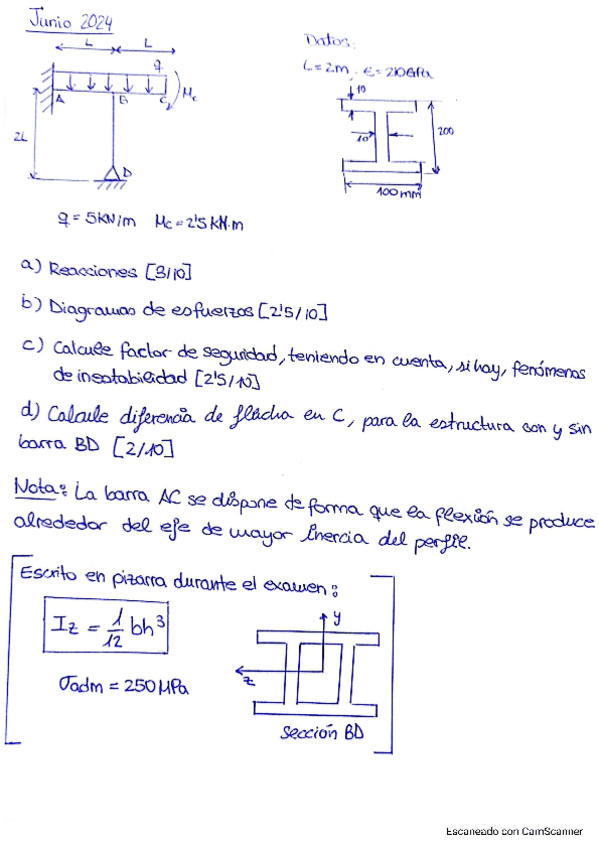 Junio 2024
L L
q
A B C Mc
2L
D
q = 5KN/m Mc = 2'5 KN·m
Datos:
L = 2m, E = 210GPa
10
10
200
100 mm
a) Reacciones [3/10]
b) Diagramas de esfuerzos [2'5/10]
c) Calcule factor de seguridad, teniendo en cuenta, si hay, fenómenos
de inestabilidad [2'5/10]
d) Calcule diferencia de flecha en C, para la estructura con y sin
barra BD [2/10]
Nota: La barra AC se dispone de forma que la flexión se produce
alrededor del eje de mayor inercia del perfil.
Escrito en pizarra durante el examen:
Iz = 1/12 bh³
σadm = 250 MPa
y
z
sección BD
Escaneado con CamScanner